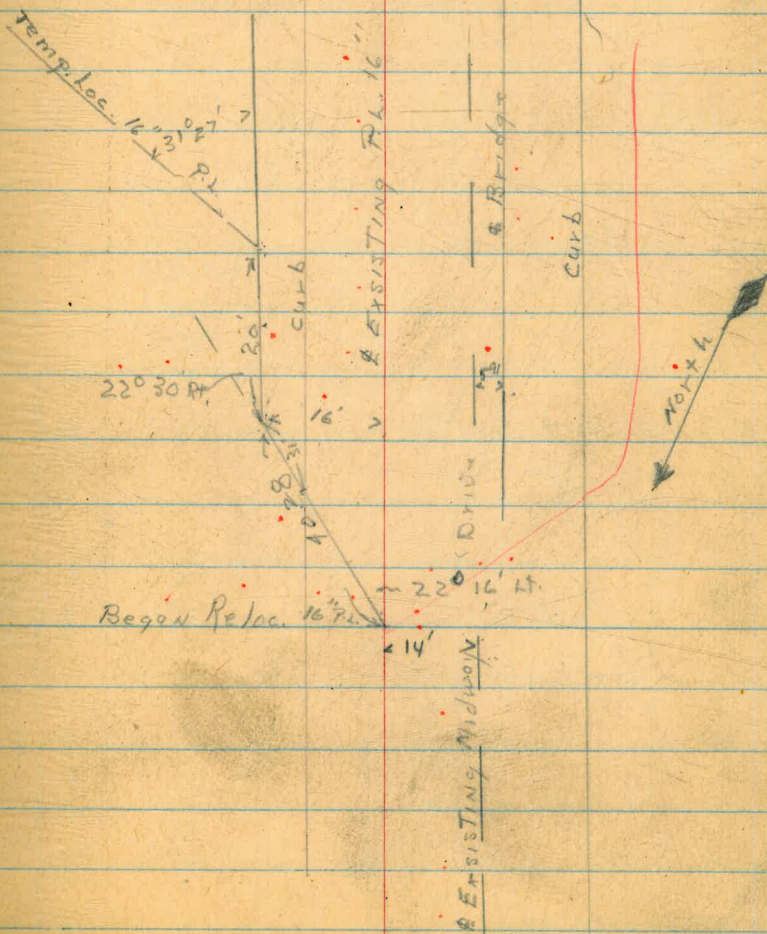 Temp. Loc. 16" P.L.
31° 27'
℄ EXSISTING P.L. 16"
℄ Bridge
Curb
Curb
20'
22° 30' Rt.
16'
North
40'
22° 16' Lt.
Began Reloc. 16" P.L.
14'
℄ EXSISTING Midway Drive